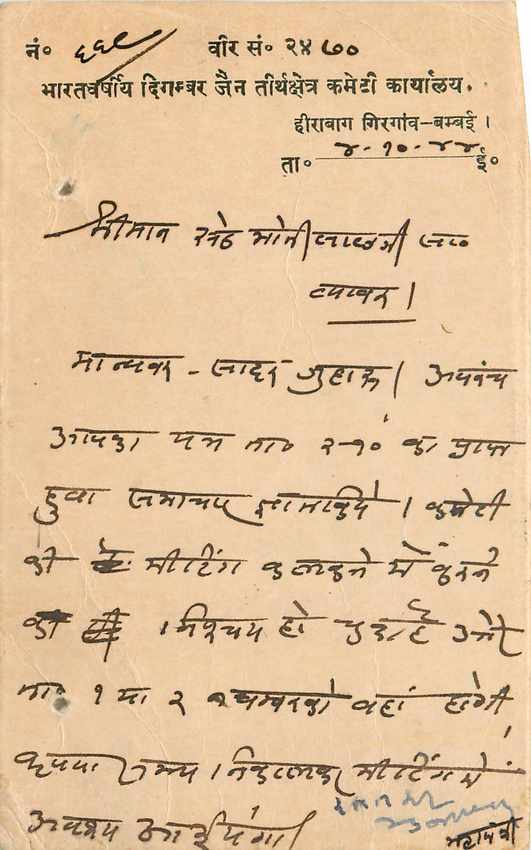 नं० ६६९ वीर सं० २४७०
भारतवर्षीय दिगम्बर जैन तीर्थक्षेत्र कमेटी कार्यालय.
हीराबाग गिरगांव-बम्बई ।
ता० ४-१०-४४ ई०
श्रीमान सेठ मोतीलालजी सा०
ब्यावर ।
मान्यवर - सादर जुहारू । अपरंच
आपका पत्र ता० २-१० का प्राप्त
हुवा समाचार ज्ञात किये । कमेटी
की मीटिंग कलकत्ते में करने
का निश्चय हो चुका है और
ता० १ या २ नवम्बरको वहां होगी
कृपया समय निकालकर मीटिंग में
अवश्य आईयेगा।
महामंत्री